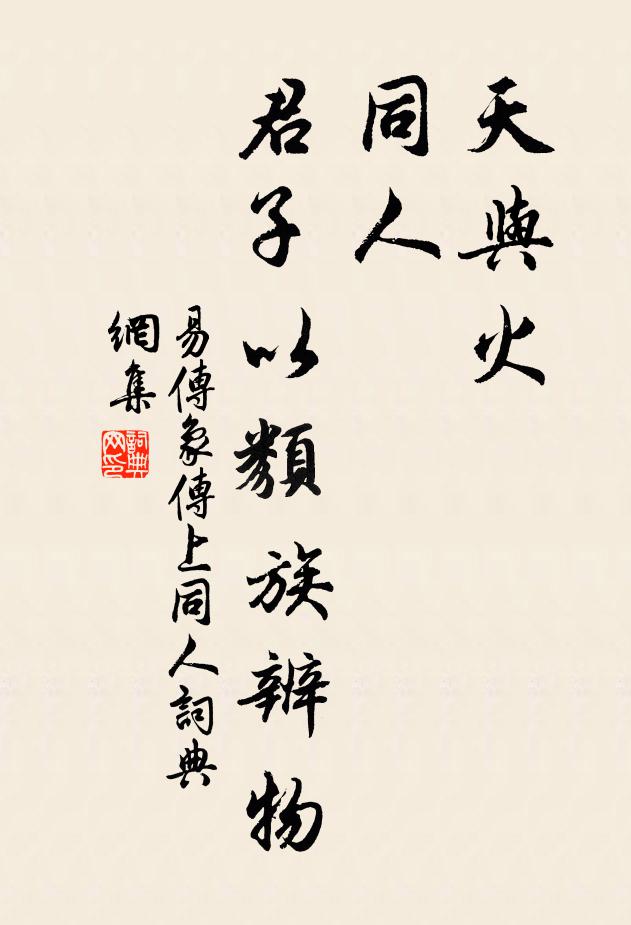 天與火
同人
君子以類族辨物
易傳象傳上同人詞典
網集
詞典
网印